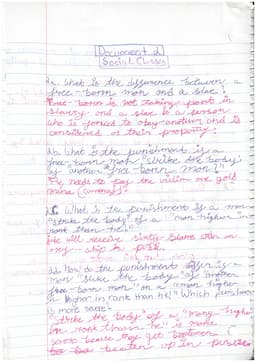 Document 2
Social Classes
1a. What is the difference between a
free-born man and a slave?
Free-born is not taking part in
slavery and a slave is a person
who is forced to obey another and is
considered as their property.
2a. What is the punishment if a
free-born man "strike the body"
of another free-born man?"
He needs to pay the victim one gold
mina
2c. What is the punishment if a man
"strike the body" of a "man higher in
rank than he"?
He will receive sixty slams with an
ox-whip in public.
2d. How do the punishment
man "strike the body" of another
free-born man" or a "man higher
in higher in rank than he?" Which punishment
is more severe?
"Strike the body" of a "man higher
in rank than he" is more
because they get
beaten up in